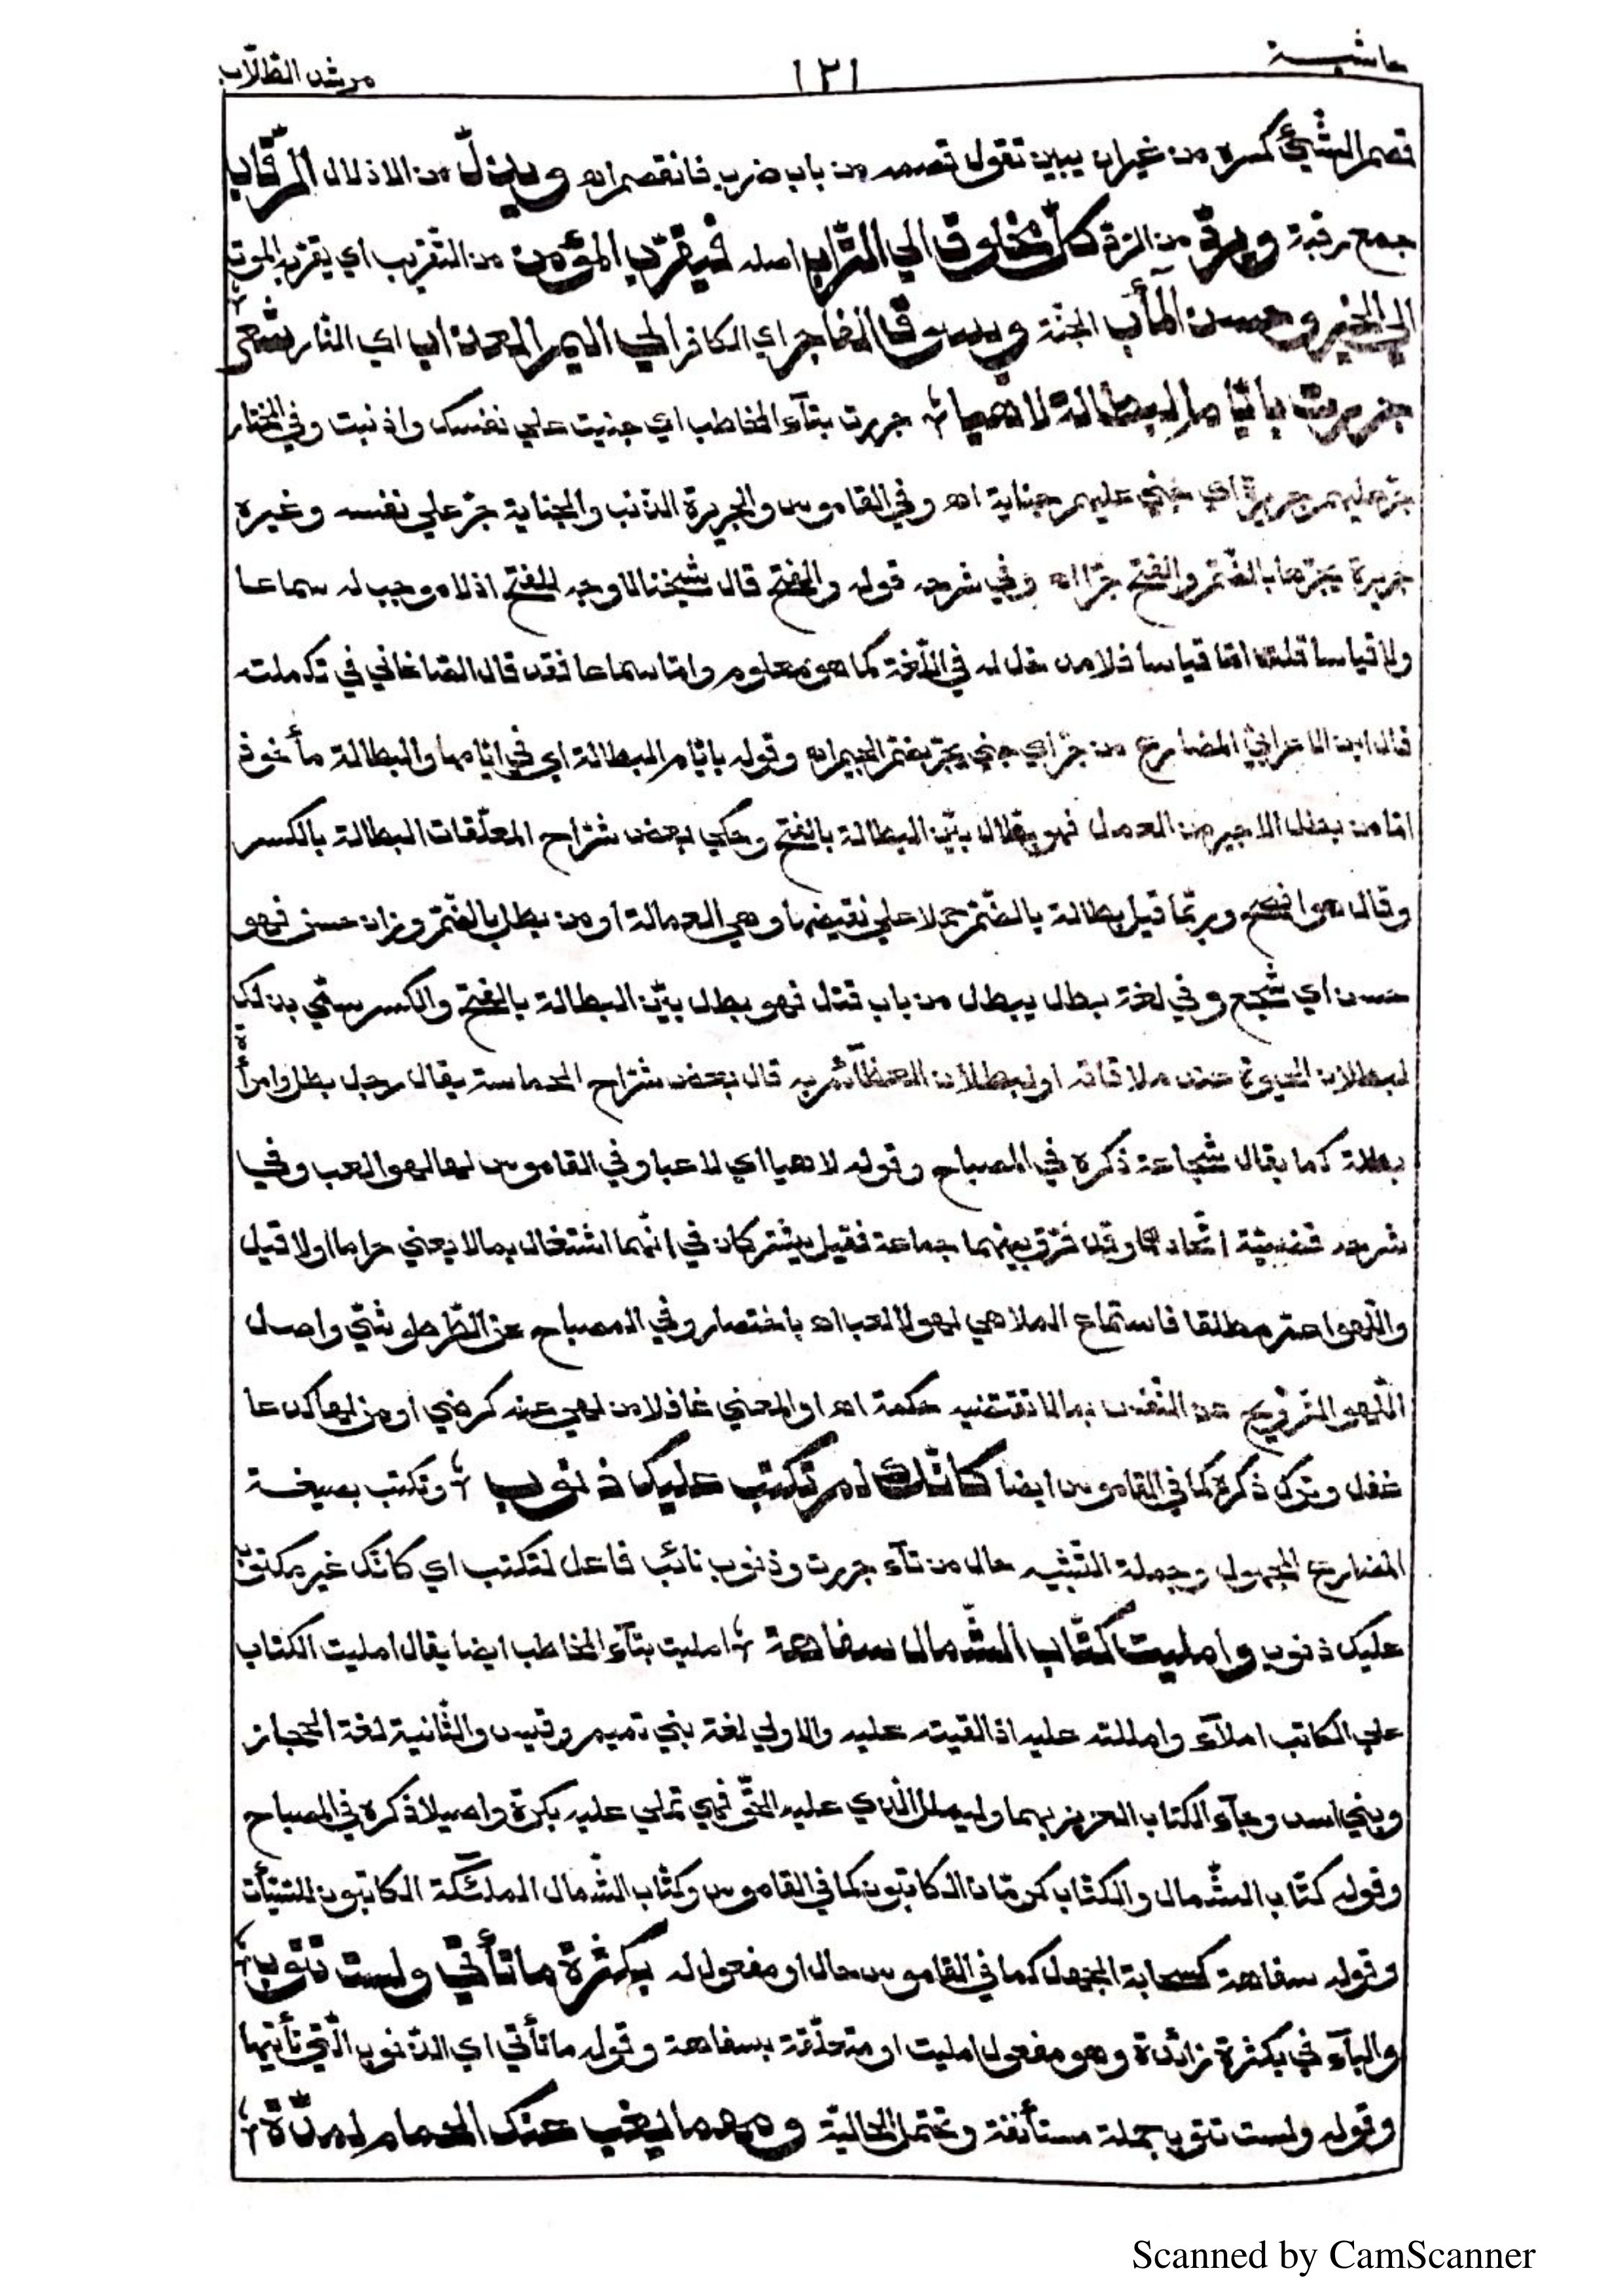 حاشية
١٢١
مرشد الطلّاب
قصم الشّيئ كسره من غيران يبين تقول قصمه من باب ضرب فانقصم اه ويذلّ من الاذلال الرّقاب
جمع رقبة ويردّ من الردّ كلّ مخلوق الي التّراب اصله فيقرّب المؤمن من التّقريب اي يقرّبه الموت
الي الخير وحسن المآب الجنّة ويسوق الفاجر اي الكافر الي اليم العذاب اي النّار شعر
جررت بايّام البطالة لاهيا جررت بتآء المخاطب اي جنيت علي نفسك واذنبت وفي المختار
جرّ عليهم جريرة اي جني عليهم جناية اه وفي القاموس والجريرة الذّنب والجناية جرّ علي نفسه وغيره
جريرة يجرّها بالضّمّ والفتح جرّا اه وفي شرحه قوله والفتح قال شيخنا لا وجه للفتح اذ لا موجب له سماعا
ولا قياسا قلت امّا قياسا فلا مدخل له في اللّغة كما هو معلوم وامّا سماعا فقد قال الصّاغاني في تكملته
قال ابن الاعرابيّ المضارع من جرّ اي جني يجرّ بفتح الجيم اه وقوله بايّام البطالة اي في ايّامها والبطالة مأخوذ
امّا من بطل الاجير من العمل فهو بطّال بيّن البطالة بالفتح وحكي بعض شرّاح المعلّقات البطالة بالكسر
وقال هو افصح وربّما قيل بطالة بالضّمّ حملا علي نقيضها وهي العمالة او من بطل بالضّمّ وزان حسن فهو
حسن اي شجع وفي لغة بطل يبطل من باب قتل فهو بطل بيّن البطالة بالفتح والكسر سمّي بذلك
لبطلان الحيوة عند ملاقاته او لبطلان العظآئم به قال بعض شرّاح الحماسة يقال رجل بطل وامرأة
بطلة كما يقال شجاعة ذكره في المصباح وقوله لاهيا اي لاعبا وفي القاموس لها لهوا لعب وفي
شرحه قضيّته اتّحادهما وقد فرّق بينهما جماعة فقيل يشتركان في انّهما اشتغال بما لا يعني حراما اولا قيل
واللّهو اعمّ مطلقا فاستماع الملاهي لهو لا لعب اه باختصار وفي المصباح عن الطّرطوشيّ واصل
اللّهو التّرويح عن النّفس بما لا تقتضيه حكمة اه او المعني غافلا من لهي عنه كرضي او من لها كدعا
غفل وترك ذكره كما في القاموس ايضا كانّك لم تكتب عليك ذنوب وتكتب بصيغة
المضارع المجهول وجملة التّشبيه حال من تآء جررت وذنوب نائب فاعل لتكتب اي كانّك غير مكتوب
عليك ذنوب وامليت كتّاب الشّمال سفاهة امليت بتآء المخاطب ايضا يقال امليت الكتاب
علي الكاتب املآء وامللته عليه اذا القيته عليه والاولي لغة بني تميم وقيس والثّانية لغة الحجاز
وبني اسد وجآء الكتاب العزيز بهما وليملل الّذي عليه الحقّ فهي تملي عليه بكرة واصيلا ذكره في المصباح
وقوله كتّاب الشّمال والكتّاب كرمّان الكاتبون كما في القاموس وكتّاب الشّمال الملئكة الكاتبون للسّيّأت
وقوله سفاهة كسحابة الجهل كما في القاموس حال او مفعول له بكثرة ما تأتي ولست تتوب
والبآء في بكثرة زائدة وهو مفعول امليت او متعلّقة بسفاهة وقوله ما تأتي اي الذّنوب الّتي تأتيها
وقوله ولست تتوب جملة مستأنفة وتحتمل الحاليّة ومهما يغب عنك الحمام لمدّة
Scanned by CamScanner